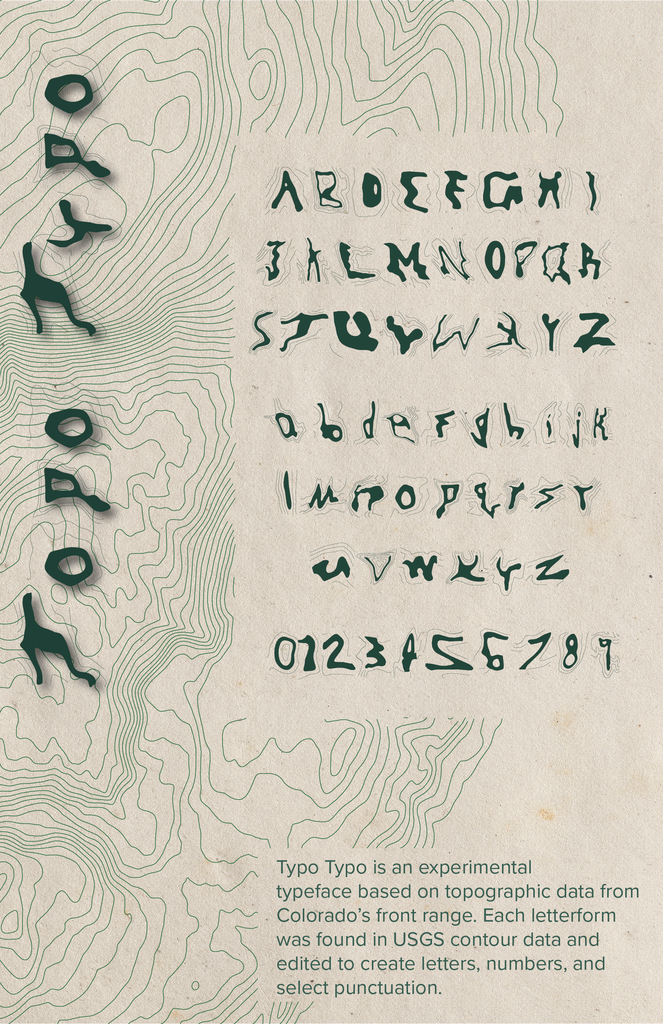 TOPO TYPO
ABDEFGHI
JKLMNOPQR
STUVWXYZ
abdefghijk
lmnopqrst
uvwxyz
0123456789
Typo Typo is an experimental
typeface based on topographic data from
Colorado’s front range. Each letterform
was found in USGS contour data and
edited to create letters, numbers, and
select punctuation.